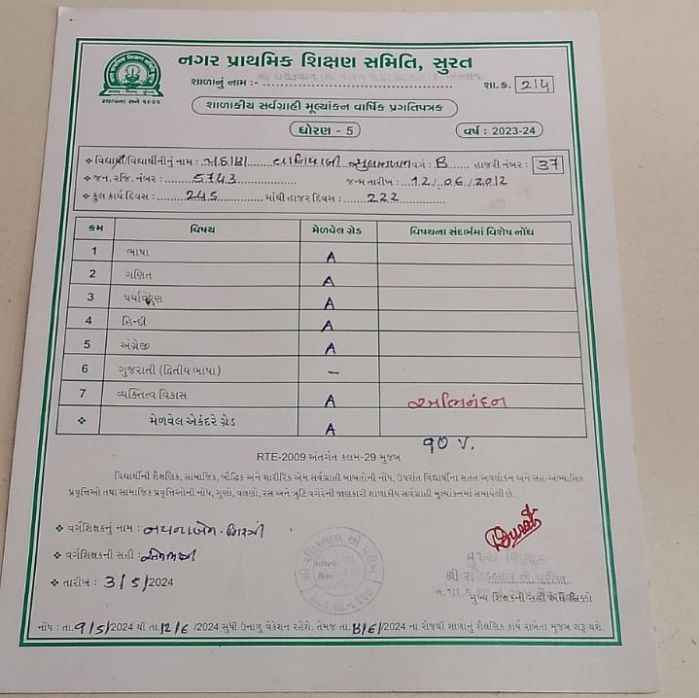 નગર પ્રાથમિક શિક્ષણ સમિતિ, સુરત
શાળાનું નામ :- શા.ક્ર. 214
સ્થાપના સને ૧૯૨૫
શાળાકીય સર્વગ્રાહી મૂલ્યાંકન વાર્ષિક પ્રગતિપત્રક
ધોરણ - 5 વર્ષ : 2023-24
❖ વિદ્યાર્થી/વિદ્યાર્થીનીનું નામ : વર્ગ : B હાજરી નંબર : 37
❖ જન.રજિ. નંબર : 5743 જન્મ તારીખ : 12/06/2012
❖ કુલ કાર્ય દિવસ : 245 માંથી હાજર દિવસ : 222
ક્રમ વિષય મેળવેલ ગ્રેડ વિષયના સંદર્ભમાં વિશેષ નોંધ
1 ભાષા A
2 ગણિત A
3 પર્યાવરણ A
4 હિન્દી A
5 અંગ્રેજી A
6 ગુજરાતી (દ્વિતીય ભાષા) –
7 વ્યક્તિત્વ વિકાસ A અભિનંદન
❖ મેળવેલ એકંદરે ગ્રેડ A
90 %.
RTE-2009 અંતર્ગત કલમ-29 મુજબ
વિદ્યાર્થીની શૈક્ષણિક, સામાજિક, બૌદ્ધિક અને શારીરિક એમ સર્વગ્રાહી બાબતોની નોંધ, ઉપરાંત વિદ્યાર્થીના સતત અવલોકન અને સહ-અભ્યાસિક
પ્રવૃત્તિઓ તથા સામાજિક પ્રવૃત્તિઓની નોંધ, ગુણો, વલણો, રસ અને ત્રુટિ વગેરેની જાણકારી શાળાકીય સર્વગ્રાહી મૂલ્યાંકનમાં સમાયેલી છે.
❖ વર્ગશિક્ષકનું નામ : નયનાબેન. મિસ્ત્રી
❖ વર્ગશિક્ષકની સહી :
❖ તારીખ : 3/5/2024
મુખ્ય શિક્ષકની સહી
નોંધ : તા.9/5/2024 થી તા.12/6/2024 સુધી ઉનાળુ વેકેશન રહેશે. તેમજ તા.13/6/2024 ના રોજથી શાળાનું શૈક્ષણિક કાર્ય રાબેતા મુજબ શરૂ થશે.